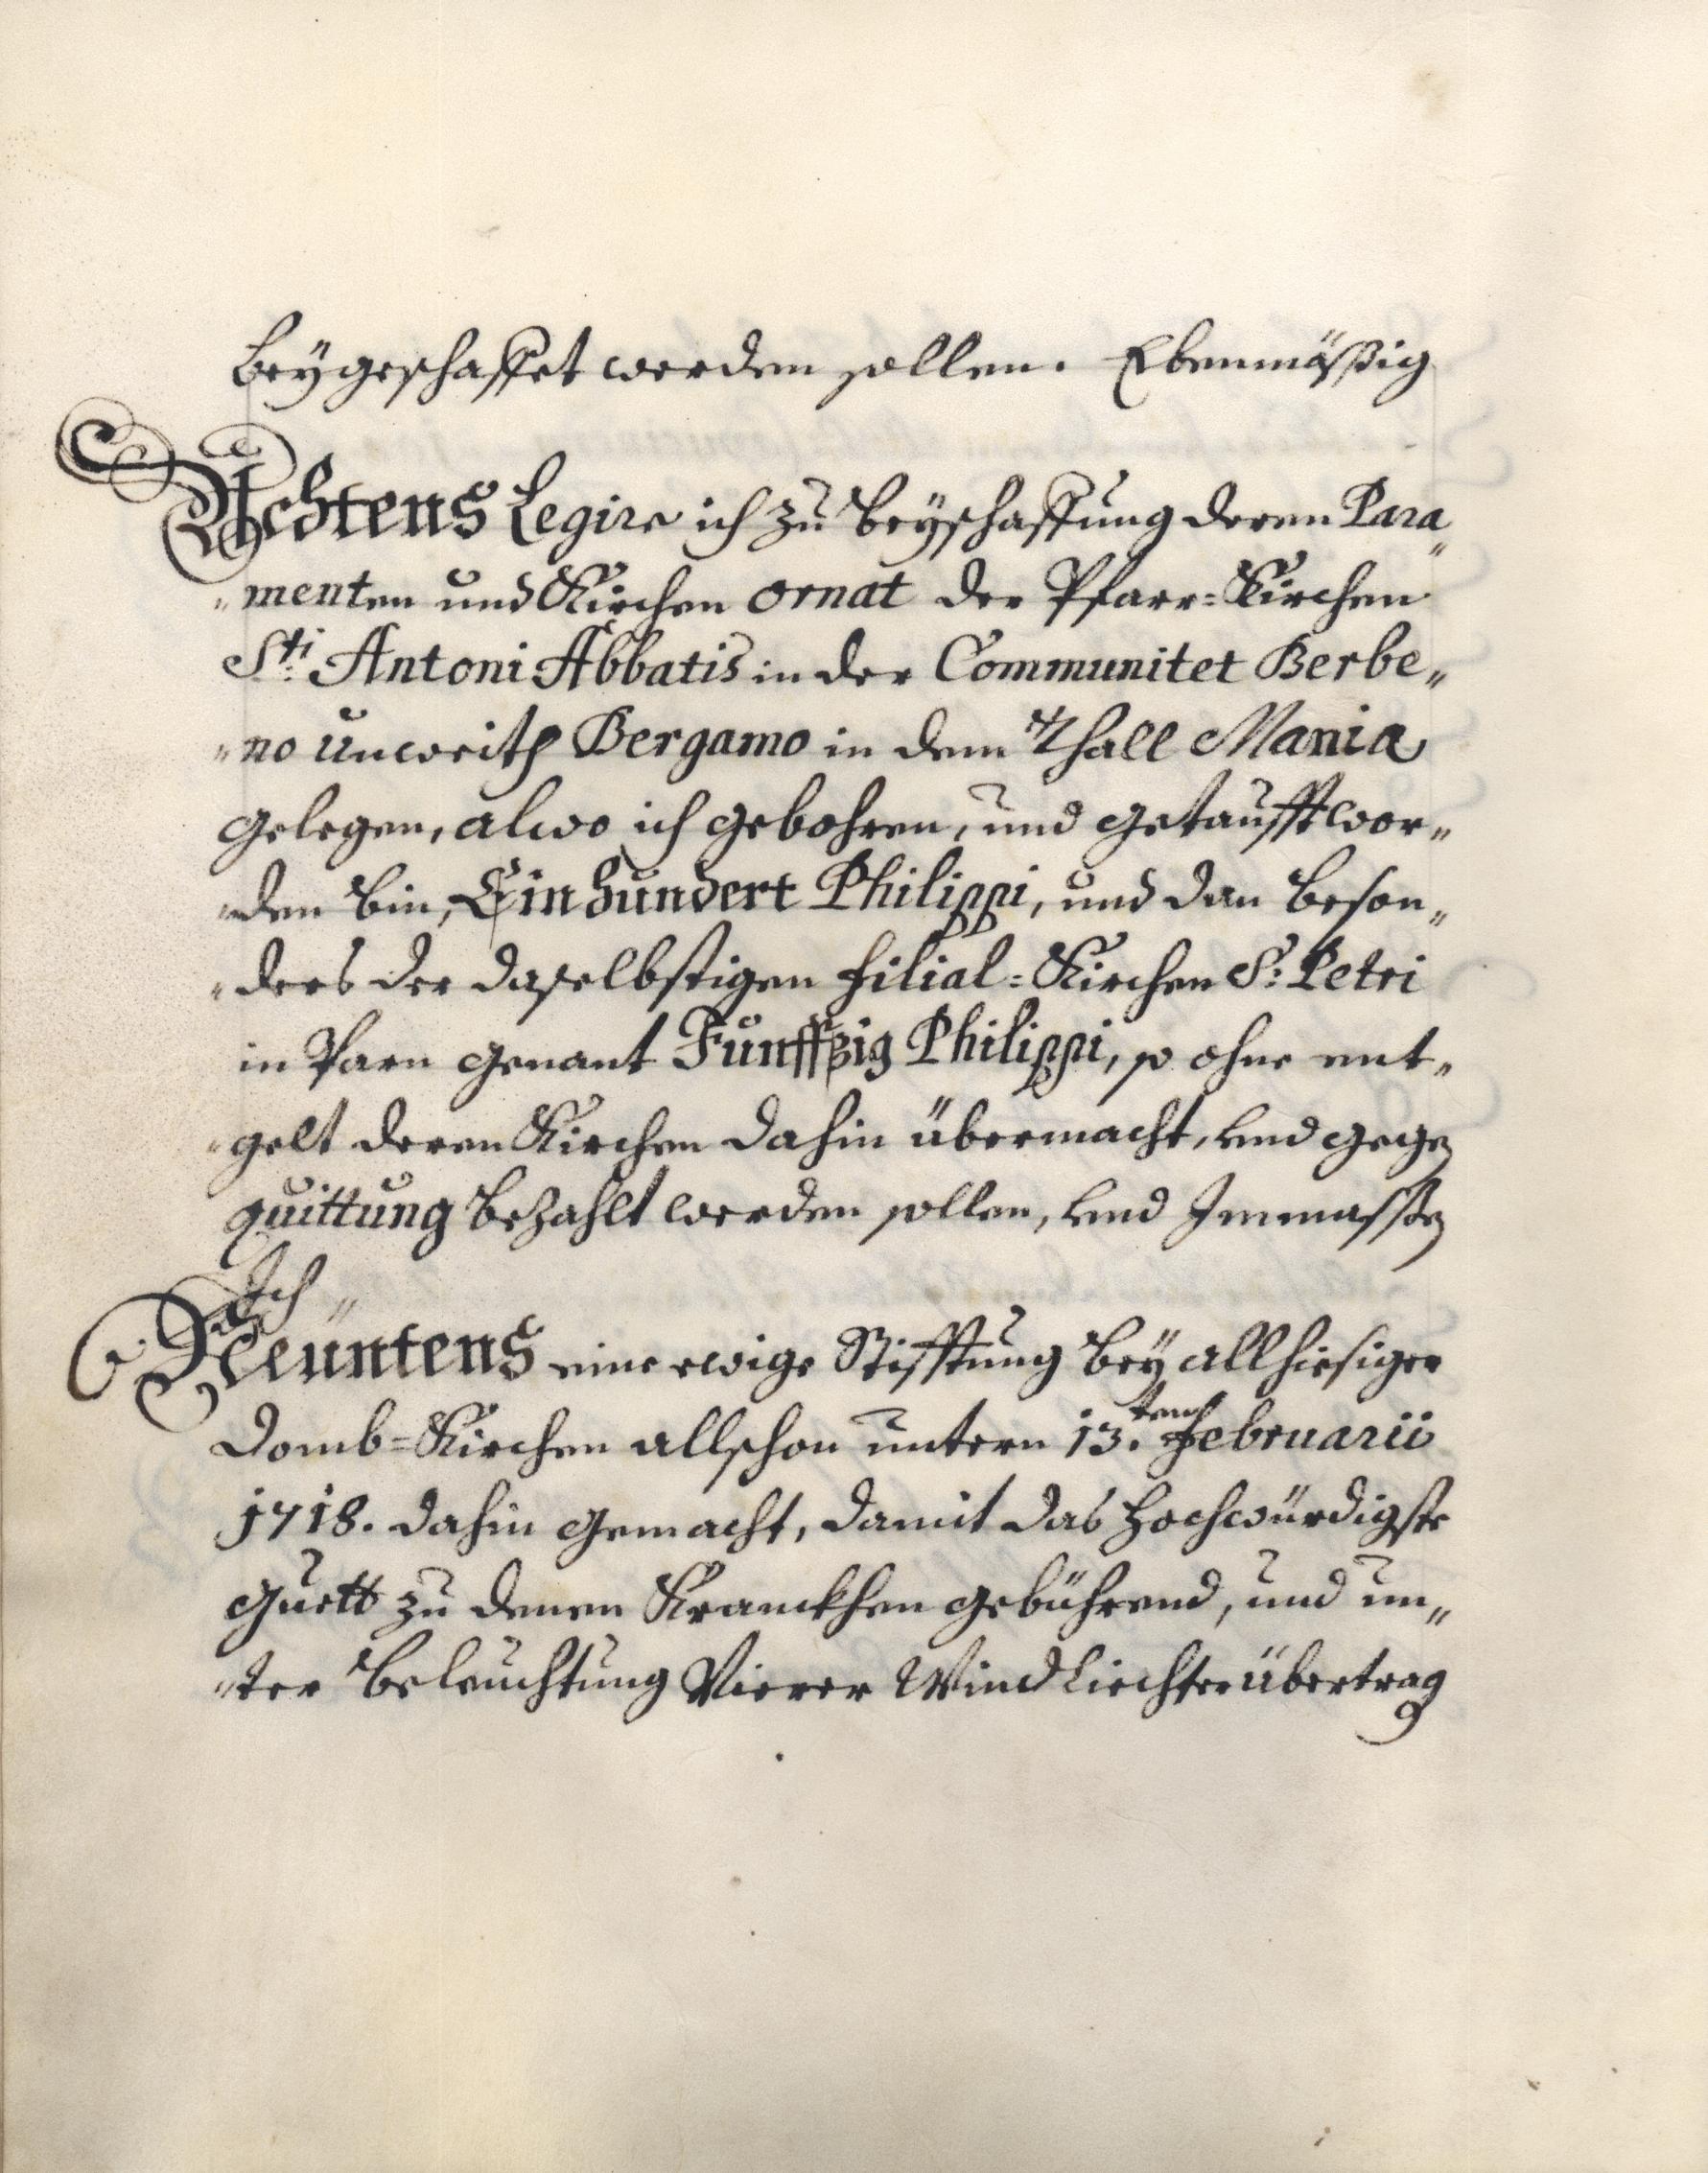 beÿgeschaffet werden sollen. Ebenmässig
Achtens Legire ich zu beÿschaffung deren Para„
„menten und Kirchen ornat der Pfarr=Kirchen
Sti: Antoni Abbatis in der Communitet Berbe„
„no unweith Bergamo in dem Thall Mania
gelegen, alwo ich gebohren, und getaufft wor„
„den bin, Ein hundert Philippi, und dan beson„
„ders der daselbstigen filial=Kirchen S: Petri
in Parn genant Fünffzig Philippi, so ohne ent„
„gelt deren Kirchen dahin übermacht, und gegen
quittung bezahlt werden sollen, und Inmassen
Ich„
Neüntens eine ewige Stifftung beÿ allhiesiger
Domb=Kirchen allschon untern 13.ten Februarii
1718. dahin gemacht, damit das hochwürdigste
guett zu denen Kranckhen gebührend, und un„
„ter beleuchtung Vierer Wind Liechter übertrag